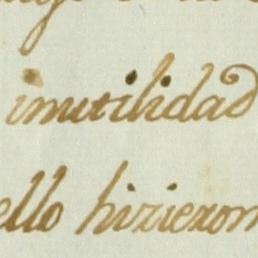 inutilidad
ello hizieron